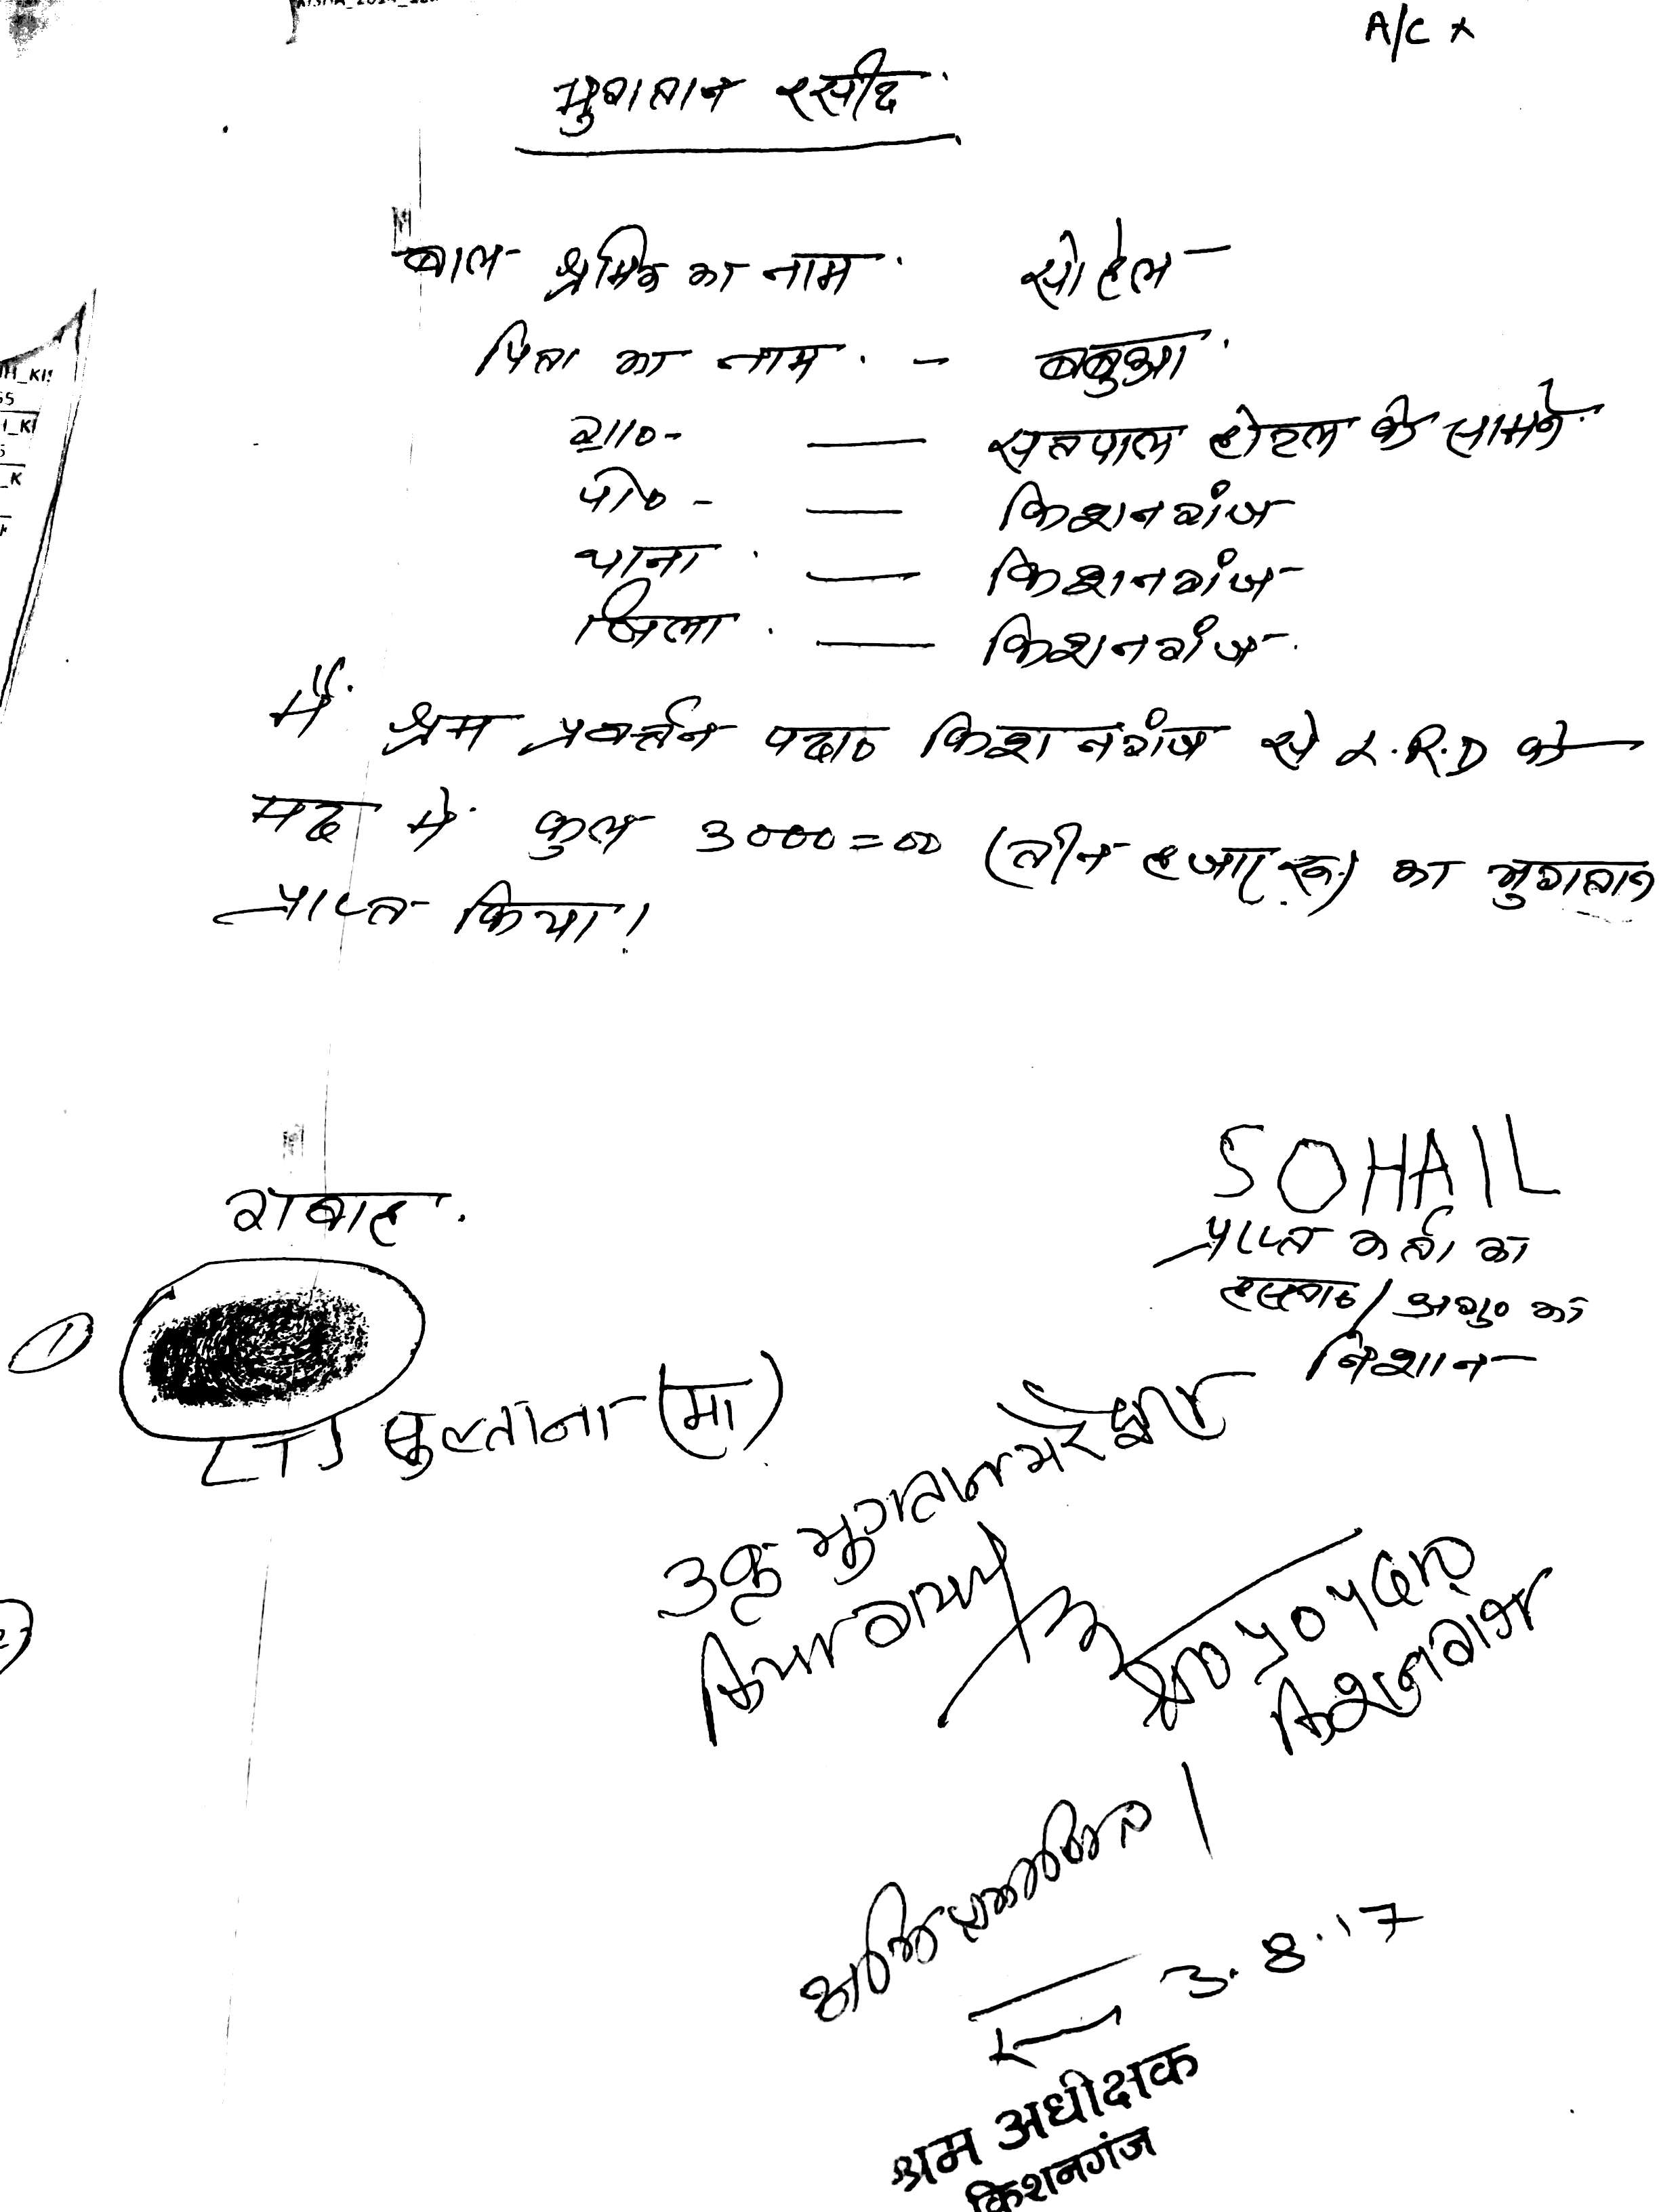 A/C x
भुगतान रसीद
बाल श्रमिक का नाम सोहेल
पिता का नाम - बबुआ
ग्रा० - सतपाल होटल के सामने
पो० - किशनगंज
थाना - किशनगंज
जिला - किशनगंज
मैं श्रम प्रवर्त्तन पदा० किशनगंज से L.R.D के
मद में कुल 3000=00 (तीन हजार रू०) का भुगतान
प्राप्त किया।
SOHAIL
प्राप्त कर्ता का
हस्ता०/अंगु० का
निशान
गवाह
1
LTI सुल्ताना (मा)
उक्त भुगतान मेरे द्वारा
किया गया
श्र० प्र० पदा०
किशनगंज
3.8.17
श्रम अधीक्षक
किशनगंज